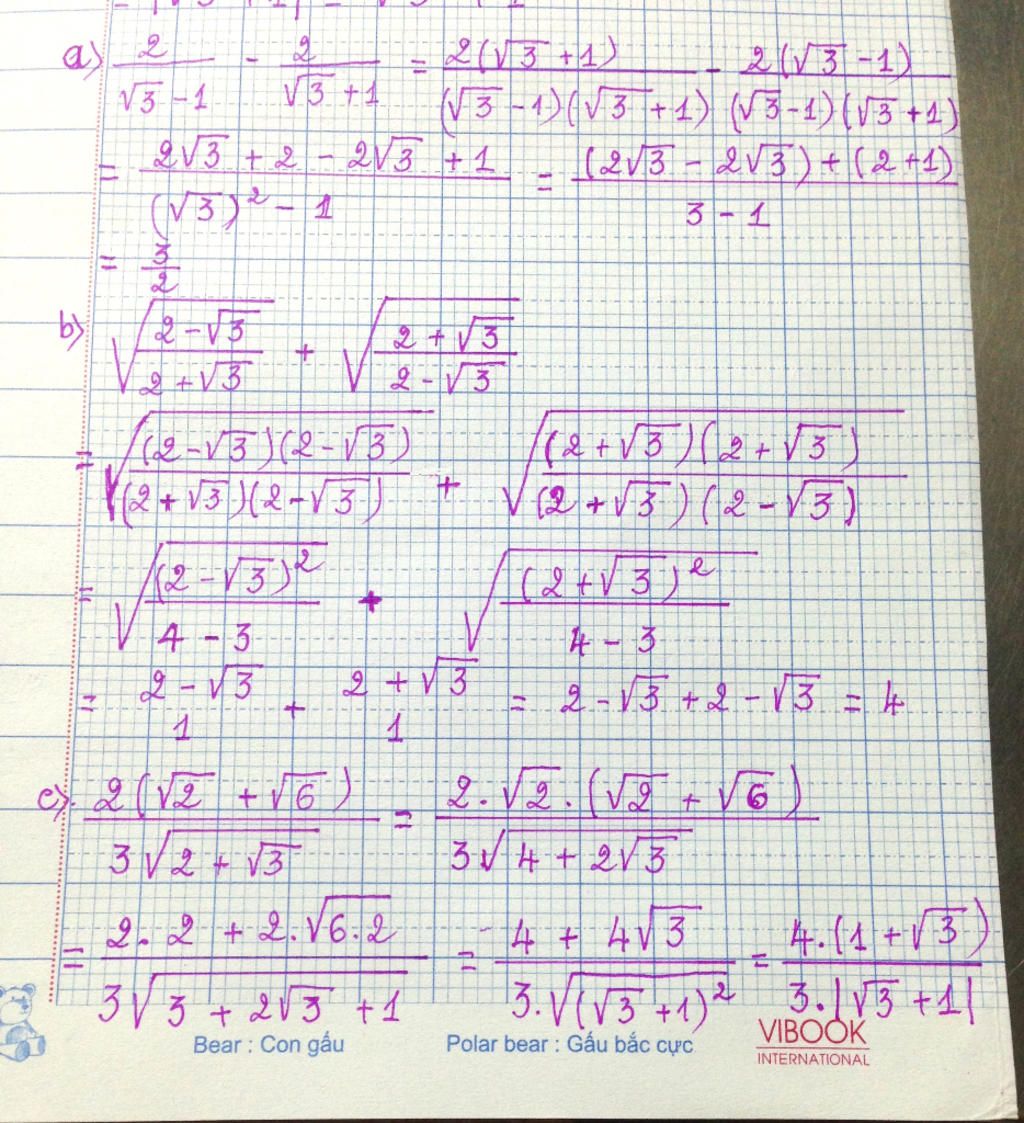 a) 2/(√3 - 1) - 2/(√3 + 1) = 2(√3 + 1)/((√3 - 1)(√3 + 1)) - 2(√3 - 1)/((√3 - 1)(√3 + 1))
= (2√3 + 2 - 2√3 + 1)/((√3)² - 1) = ((2√3 - 2√3) + (2 + 1))/(3 - 1)
= 3/2
b) √((2 - √3)/(2 + √3)) + √((2 + √3)/(2 - √3))
= √((2 - √3)(2 - √3)/((2 + √3)(2 - √3))) + √((2 + √3)(2 + √3)/((2 + √3)(2 - √3)))
= √((2 - √3)²/(4 - 3)) + √((2 + √3)²/(4 - 3))
= (2 - √3)/1 + (2 + √3)/1 = 2 - √3 + 2 - √3 = 4
c) 2(√2 + √6)/(3√(2 + √3)) = 2.√2.(√2 + √6)/(3√(4 + 2√3))
= (2.2 + 2.√(6.2))/(3√(3 + 2√3 + 1)) = (4 + 4√3)/(3.√((√3 + 1)²)) = 4.(1 + √3)/(3.|√3 + 1|)
Bear : Con gấu
Polar bear : Gấu bắc cực
VIBOOK
INTERNATIONAL